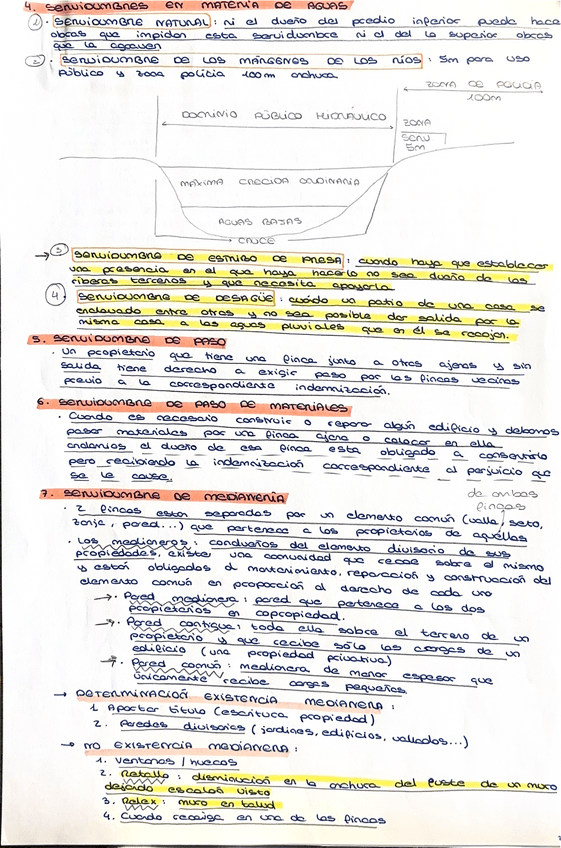 4. SERVIDUMBRES EN MATERIA DE AGUAS
1. SERVIDUMBRE NATURAL: ni el dueño del predio inferior puede hacer
obras que impidan esta servidumbre ni el de lo superior obras
que la agraven
2. SERVIDUMBRE DE LOS MÁRGENES DE LOS RÍOS: 5m para uso
público y zona policia 100m anchura
ZONA DE POLICIA
100m
DOMINIO PÚBLICO HIDRÁULICO
ZONA
SERV
5m
MÁXIMA CRECIDA ORDINARIA
AGUAS BAJAS
CAUCE
→ 3 SERVIDUMBRE DE ESTRIBO DE PRESA: cuando haya que establecer
una presencia en el que haya hacerlo no sea dueño de las
riberas terrenos y que necesita apoyarla
4. SERVIDUMBRE DE DESAGÜE: cuando un patio de una casa se
enclavado entre otras y no sea posible dar salida por la
misma casa a las aguas pluviales que en él se recojan.
5. SERVIDUMBRE DE PASO
· Un propietario que tiene una finca junto a otras ajenas y sin
salida tiene derecho a exigir paso por las fincas vecinas
previo a la correspondiente indemnización.
6. SERVIDUMBRE DE PASO DE MATERIALES
· Cuando es necesario construir o reparar algún edificio y debamos
pasar materiales por una finca ajena o colocar en ella
andamios el dueño de esa finca esta obligado a consentirlo
pero recibiendo la indemnización correspondiente al perjuicio que
se le cause.
7. SERVIDUMBRE DE MEDIANERIA
de ambas
fincas
· 2 fincas estan separadas por un elemento común (valla, seto,
zanja, pared...) que pertenece a los propietarios de aquellas
· Los medianeros: condueños del elemento divisorio de sus
propiedades, existe una comunidad que recae sobre el mismo
y están obligados al mantenimiento, reparación y construcción del
elemento común en proporción al derecho de cada uno
→ Pared medianera: pared que pertenece a los dos
propietarios en copropiedad.
→ Pared contigua: toda ella sobre el terreno de un
propietario y que recibe sólo las cargas de un
edificio (una propiedad privativa)
→ Pared común: medianera de menor espesor que
únicamente recibe cargas pequeñas
→ DETERMINACIÓN EXISTENCIA MEDIANERA:
1. Aportar titulo (escritura propiedad)
2. Paredes divisorias (jardines, edificios, vallados...)
→ NO EXISTENCIA MEDIANERA:
1. Ventanas / huecos
2. Retallo: disminución en la anchura del fuste de un muro
dejando escalón visto
3. Relex: muro en talud
4. Cuando recaiga en una de las fincas